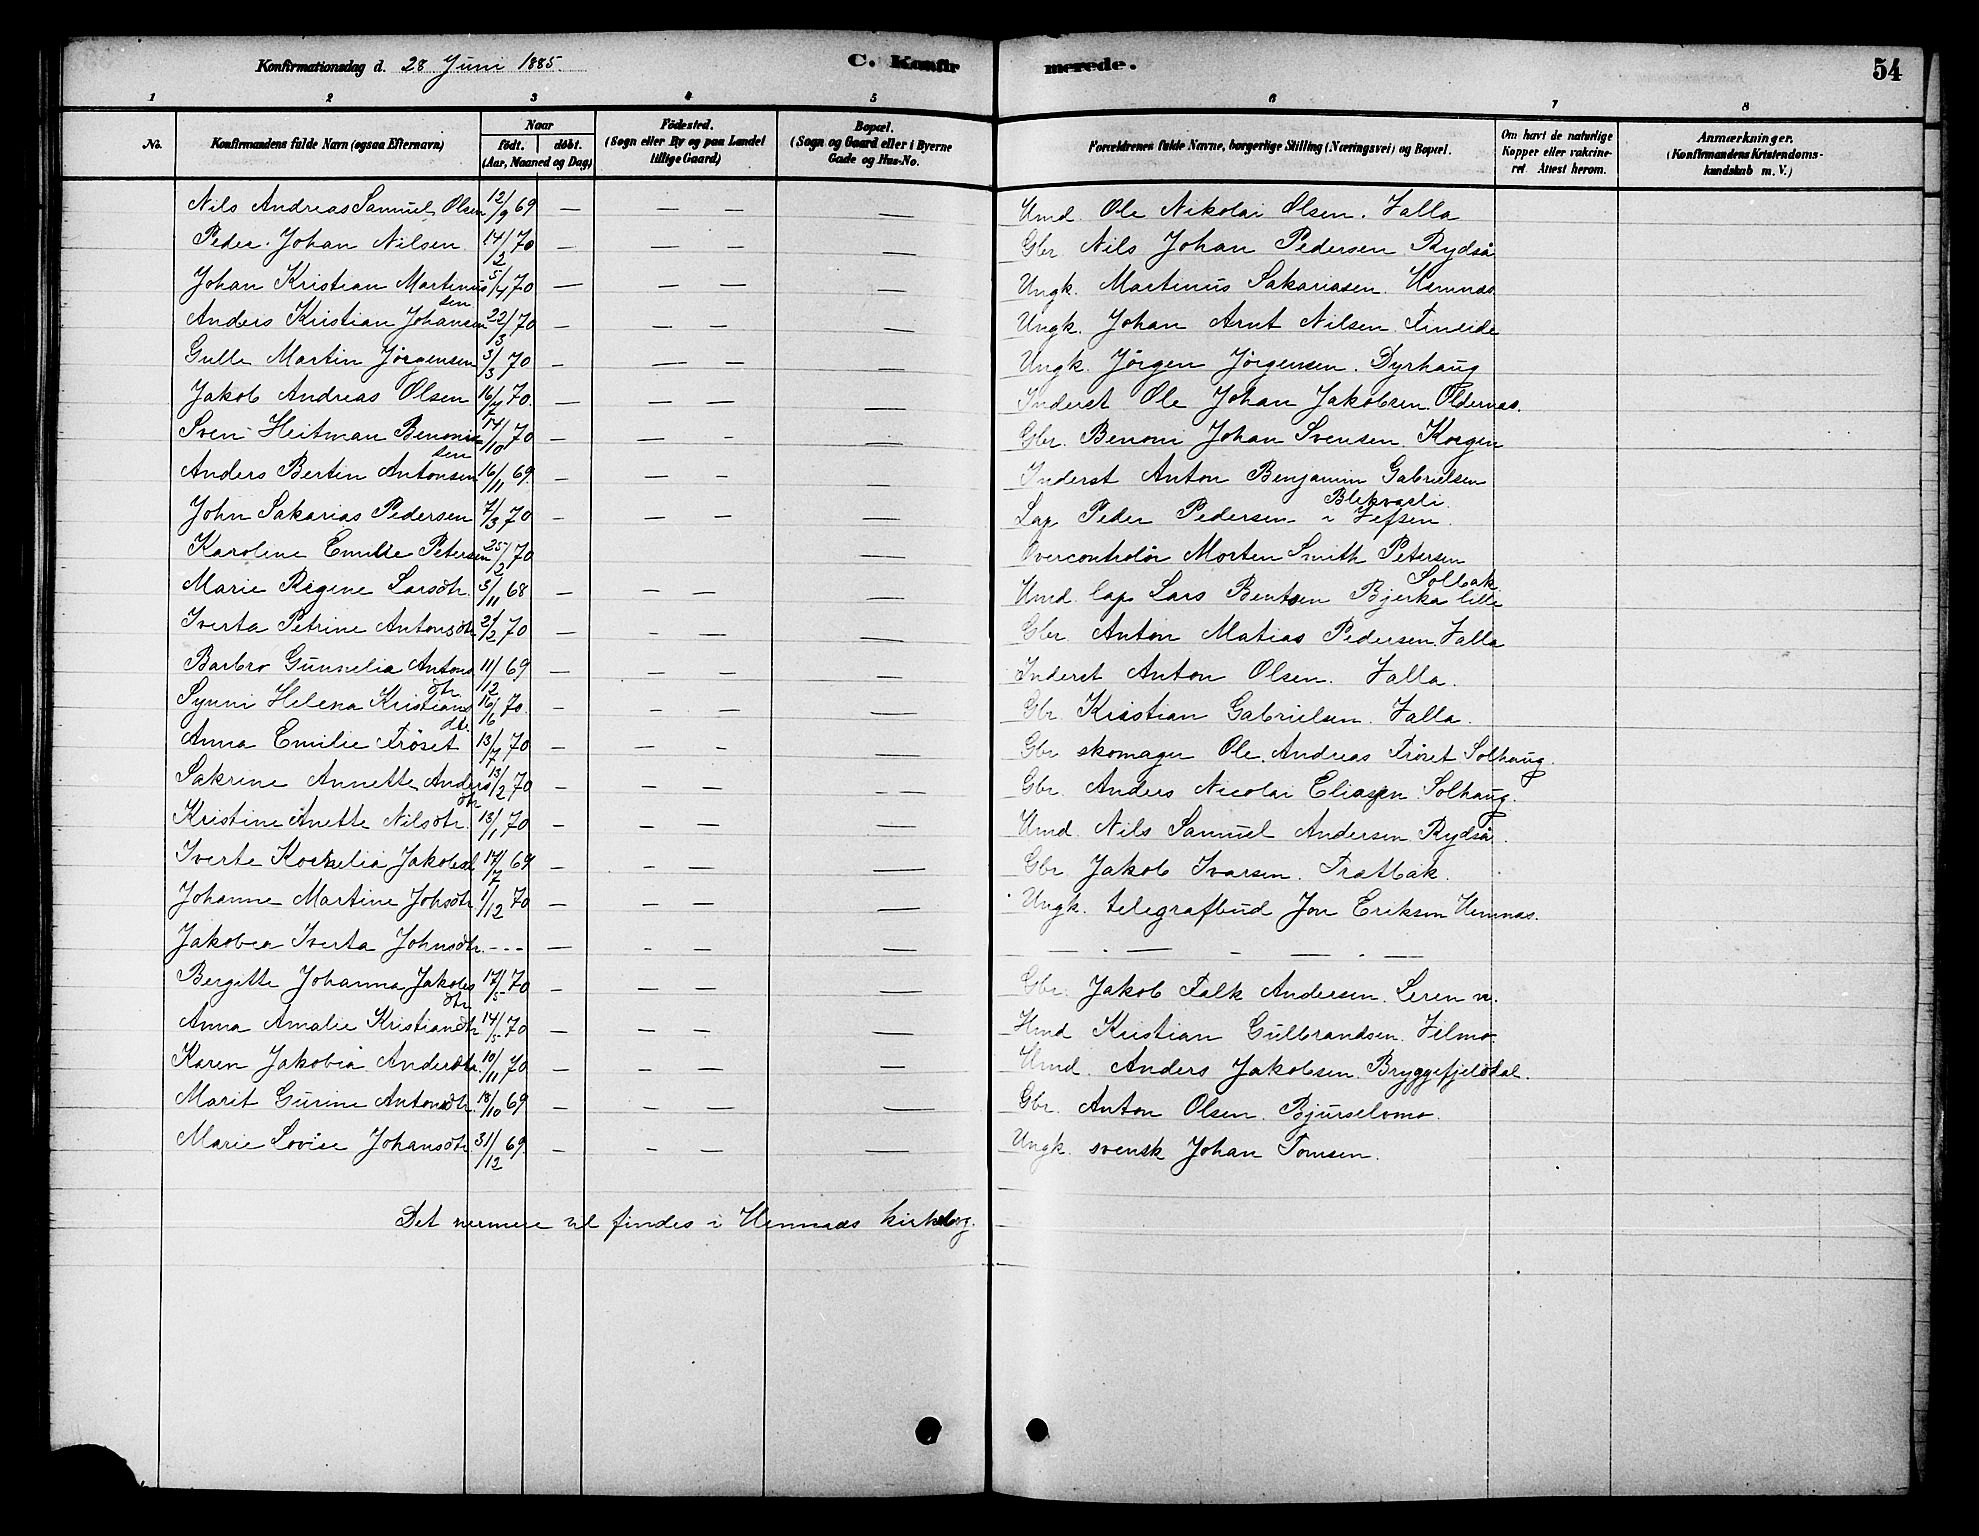 Konfirmationsdag d. 28 Juni 1885.
C. Konfirmerede.
54
1 2 3 4 5 6 7 8
No.
Konfirmandens fulde Navn (ogsaa Efternavn)
Naar
födt. döbt.
(Aar, Maaned og Dag)
Födested.
(Sogn eller By og paa Landet
tillige Gaard)
Bopæl.
(Sogn og Gaard eller i Byerne
Gade og Hus-No.
Forældrenes fulde Navne, borgerlige Stilling (Næringsvei) og Bopæl.
Om havt de naturlige
Kopper eller vakcine-
ret. Attest herom.
Anmærkninger.
(Konfirmandens Kristendoms-
kundskab m. V.)
Nils Andreas Samuel Olsen 12/9 69 — — — — Hmd. Ole Nikolai Olsen. Valla
Peder Johan Nilsen 14/2 70 — — — — Gbr. Nils Johan Pedersen Rydså
Johan Kristian Martinussen 5/4 70 — — — — Ungk. Martinus Sakariasen Hemnæs
Anders Kristian Johansen 22/3 70 — — — — Ungk. Johan Arnt Nilsen Fineide
Gulle Martin Jörgensen 3/3 70 — — — — Ungk. Jörgen Jörgensen. Dyrhaug
Jakob Andreas Olsen 16/7 70. — — — — Inderst Ole Johan Jakobsen. Oldernæs.
Sven Heitman Benonisen 14/10 70 — — - — Gbr. Benoni Johan Svensen Korgen
Anders Bertin Antonsen 16/11 69. — — - — Inderst Anton Benjamin Gabrielsen
John Sakarias Pedersen 7/3 70 — — — — Lap Peder Pedersen Blekvasli i Vefsen.
Karoline Emilie Petersen 25/2 70 — Overcontrolör Morten Smith Petersen Solbak
Marie Regine Larsdtr. 3/11 68 — — — — Hmd. lap Lars Bentsen Bjerka lille
Iverta Petrine Antonsdtr 21/2 70 — - — — Gbr Anton Matias Pedersen. Valla
Barbro Gunnelia Antonsdtr 11/12 69 — — — — Inderst Anton Olsen. Valla.
Synni Helena Kristiansdtr. 16/6 70. — — — — Gbr Kristian Gabrielsen. Valla.
Anna Emilie Tröset 13/7 70 — — - — Gbr skomager Ole Andreas Tröset Solhaug.
Sakrine Annette Andersdtr 13/2 70 — — — — Gbr. Anders Nicolai Eliasen Solhaug.
Kristine Anette Nilsdtr. 13/1 70 — — — — Hmd. Nils Samuel Andersen Rydså.
Iverte Kornelia Jakobsd 17/7 69 — — — — Gbr Jakob Ivarsen. Tratbak.
Johanne Martine Johsdtr 1/12 70 — — — — Ungk. telegrafbud Jon Eriksen Hemnæs.
Jakobea Iverta Johnsdtr. - - - — - — — — . — - — . —
Bergitte Johanna Jakobsdtr 17/5 70 — — — — Gbr. Jakob Falk Andersen. Leren n.
Anna Amalie Kristiansdtr 14/5 70 — — — — Hmd Kristian Gulbrandsen. Vilmo.
Karen Jakobia Andersdtr. 10/11 70 — — — — Hmd. Anders Jakobsen. Bryggefjeldal.
Marit Gurine Antonsdtr. 18/10 69 — — — — Gbr. Anton Olsen. Bjurselvmo.
Marie Lovise Johansdtr. 31/12 69. — — — — Ungk. svensk Johan Tomsen.
Det nermere vil findes i Hemnæs kirkebog.